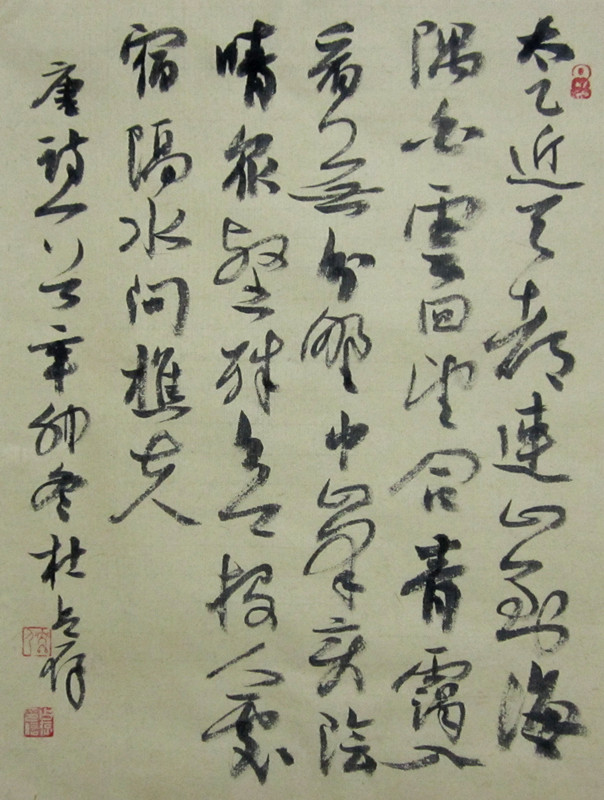 太乙近天都連山到海
隅白雲回望合青靄入
看無分野中峯變陰
晴眾壑殊欲投人處
宿隔水問樵夫
唐詩一首辛卯冬杜